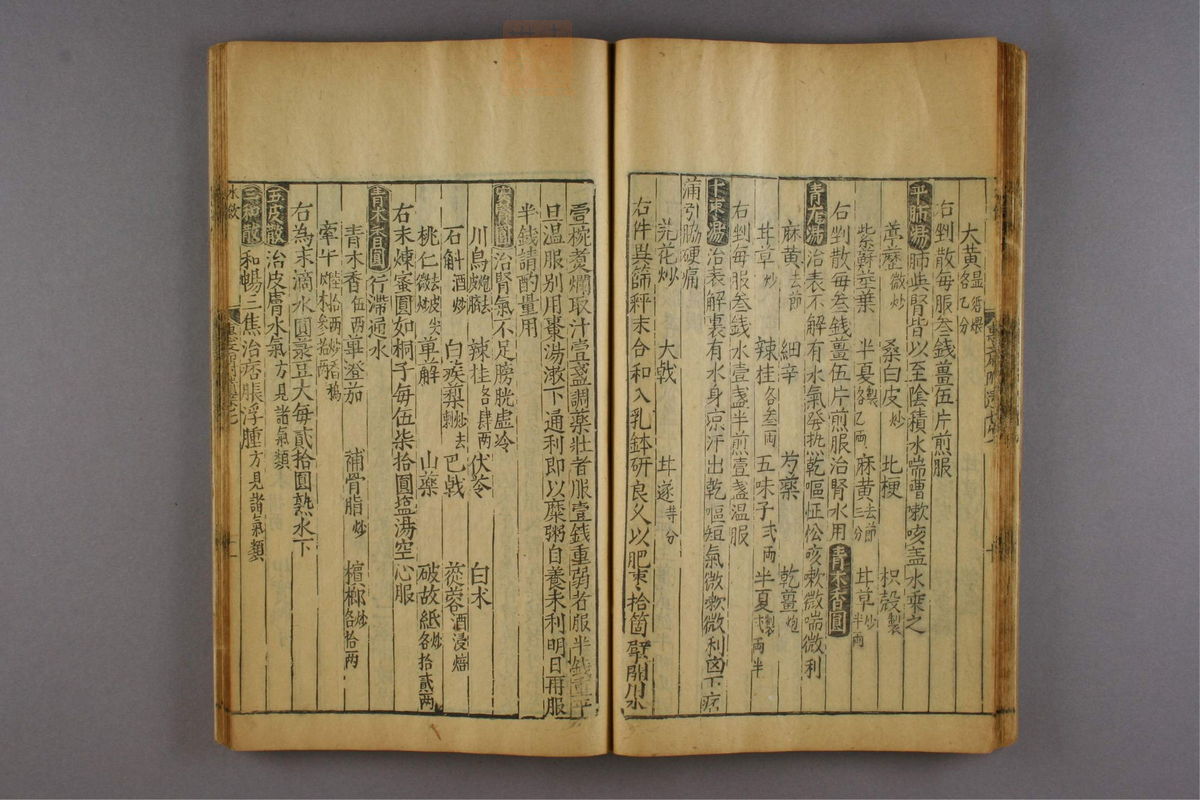 大黄温紙煨各乙分
右剉散每服叁錢薑伍片煎服
平肺湯 肺與腎皆以至陰積水喘嘈嗽咳盖水乘之
葶藶微炒 桑白皮炒 北梗 枳殻製
紫蘇莖葉 半夏製各乙両 麻黄去節三分 甘草炒半両
右剉散每叁錢薑伍片煎服治腎水用青木香圓
青龍湯 治表不解有水氣發热乾嘔怔忪咳嗽微喘微利
麻黄去節 細辛 芍藥 乾薑炮
甘草炒 辣桂各叁両 五味子弍両 半夏製弍両半
右剉每服叁錢水壹盞半煎壹盞温服
十棗湯 治表解裏有水身凉汗出乾嘔短氣微欬微利㐫下痞
滿引脇硬痛
芫花炒 大戟 甘遂等分
右件異篩秤末合和入乳鉢研良久以肥棗拾箇擘開用水
壹椀煑爛取汁壹盞調藥壮者服壹錢重弱者服半錢重平
旦温服别用棗湯漱下通利即以糜粥自養未利明日再服
半錢請酌量用
圓 治腎氣不足膀胱虚冷
川烏炮去皮臍 辣桂各肆両 茯苓 白术
石斛酒炒 白蒺藜炒去刺 巴戟 蓯蓉酒浸熘
桃仁去皮尖微炒 萆解 山藥 破故紙炒各拾貳両
右末煉蜜圓如桐子每伍柒拾圓盐湯空心服
青木香圓 行滯通水
青木香伍両 蓽澄茄 補骨脂炒 檳榔炒各拾両
牽牛
右為末滴水圓菉豆大每貳拾圓熟水下
五皮散 治皮膚水氣方見諸氣類
三和散 和暢三焦治痞脹浮腫方見諸氣類